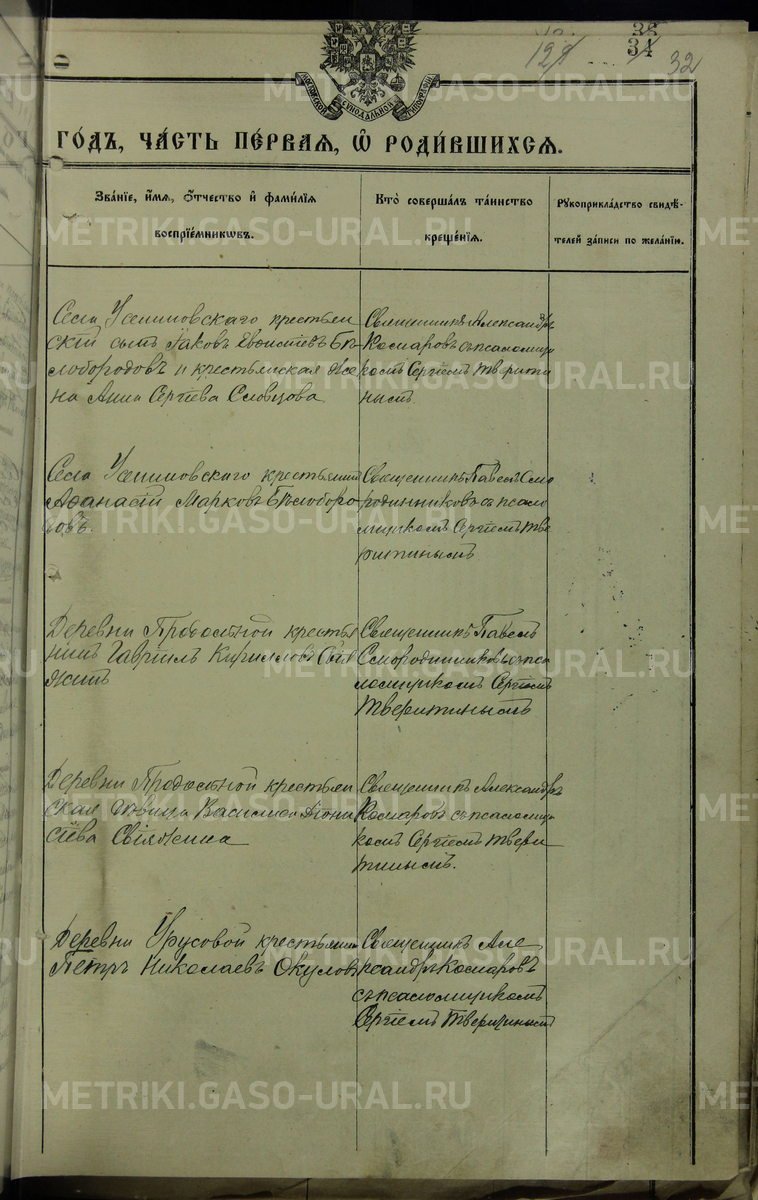 34
32
МОСКОВСКОЙ СИНОДАЛЬНОЙ ТИПОГРАФИИ
ГО́ДЪ, ЧА́СТЬ ПЕ́РВАЯ, Ѽ РОДИ́ВШИХСЯ.
Зва́нїе, и́мя, о́тчество и фами́лїя
воспрїе́мниковъ.
Кто̀ соверша́лъ та́инство
креще́нїя.
Рꙋкоприкла́дство свидѣ́-
телей за́писи по жела́нїю.
Села крестьян
скій сынъ Яковъ Бѣ
лобородовъ и крестьянская же
на Анна Сергіева Словцова
Священникъ Александръ
Комаровъ съ псаломщи
комъ Сергіемъ Твери
Села крестьянинъ
Аѳанасій Марковъ Бѣлоборо
довъ.
Священникъ Павелъ Смо
родинниковъ съ псало
мщикомъ Сергіемъ Тве
ритинымъ
Деревни крестья
нинъ Гавріилъ Кирилловъ Свія
жинъ
Священникъ Павелъ
Смородинниковъ съ пса
ломщикомъ Сергіемъ
Тверитинымъ
Деревни крестьян
ская дѣвица Василиса Аѳана
сіева Свіяжина
Священникъ Александръ
Комаровъ съ псаломщи
комъ Сергіемъ Твери
тинымъ.
Деревни Урусовой крестьянинъ
Петръ Николаевъ Окуловъ
Священникъ Але
ксандръ Комаровъ
съ псаломщикомъ
Сергіемъ Тверитинымъ
METRIKI.GASO-URAL.RU